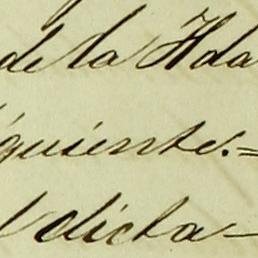 de la Hda
iguiente.=
dicta-